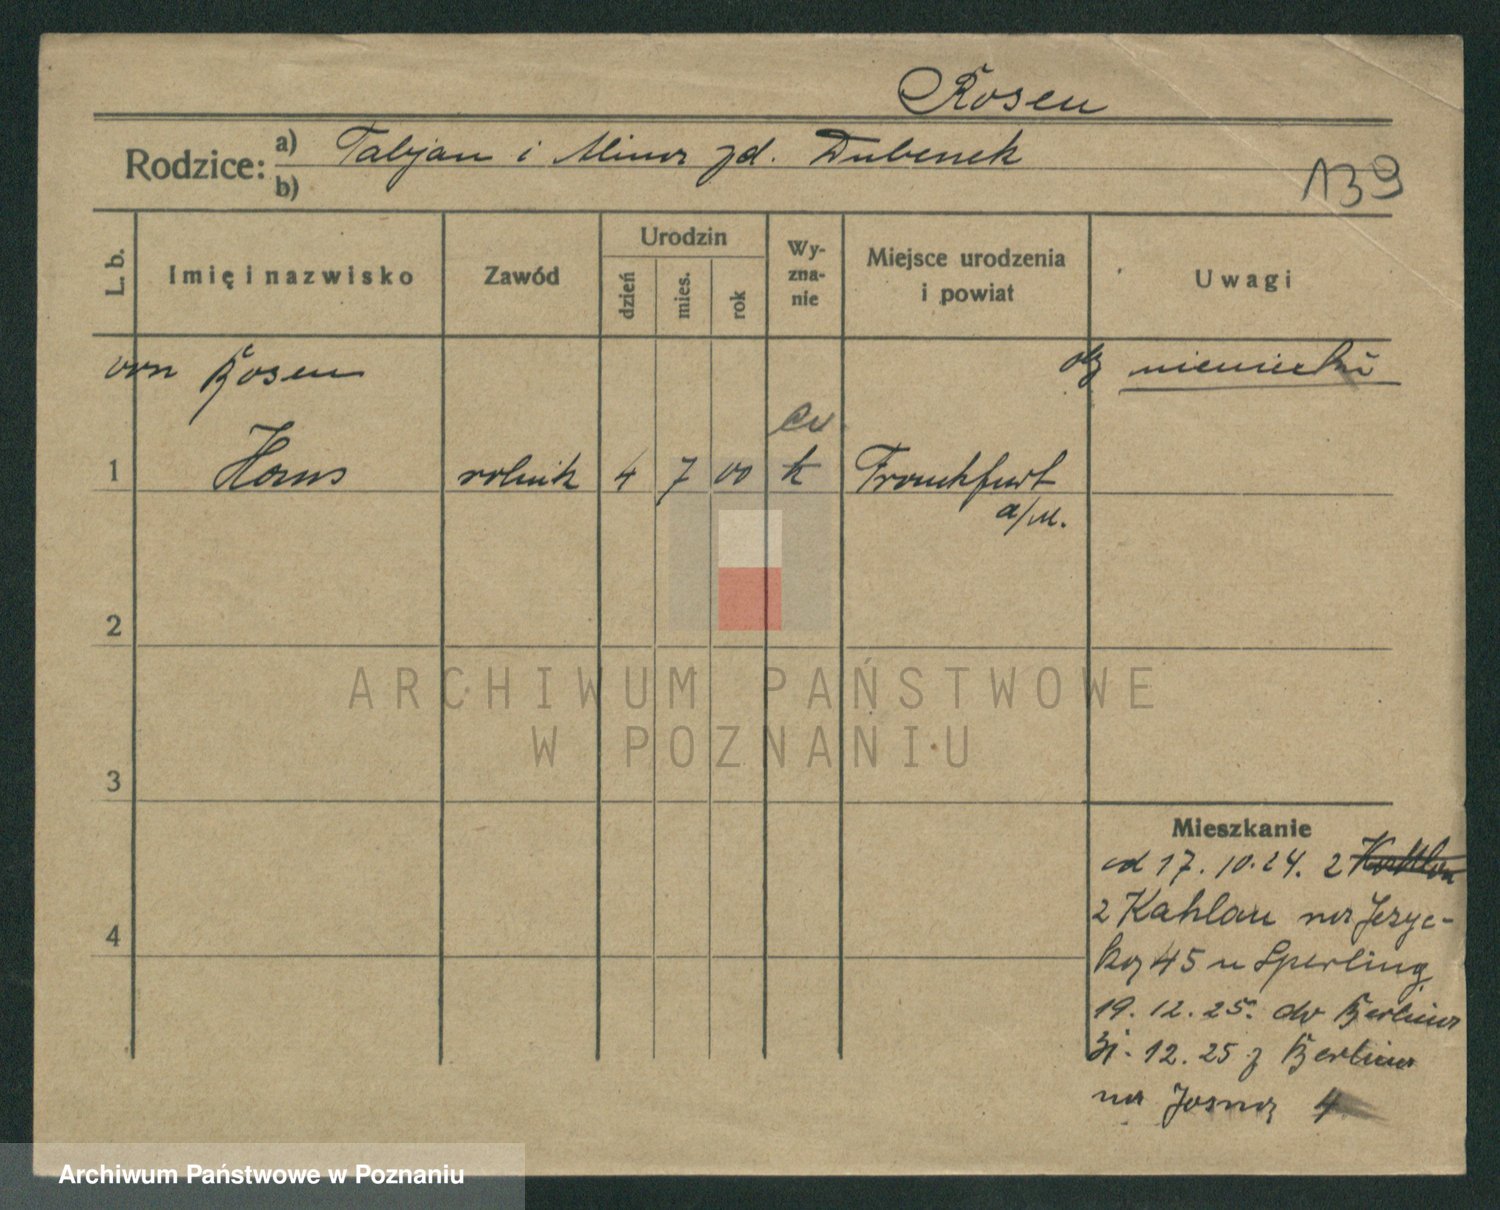 Rosen
Rodzice: a) Fabjan i Minna zd. Dubenek
b)
139
L. b.
Imię i nazwisko
Zawód
Urodzin
dzień
mies.
rok
Wy-
zna-
nie
Miejsce urodzenia
i powiat
Uwagi
von Rosen
ob niemiecki
ev.
1 Hans rolnik 4 7 00 k Frankfurt
a/M.
2
3
4
Mieszkanie
od 17.10.24. z
z Kahlau na Jeżyc-
ką 45 u Sperling
19.12.25. do Berlina
31.12.25 z Berlina
na Jasną 4
ARCHIWUM PAŃSTWOWE
W POZNANIU
Archiwum Państwowe w Poznaniu